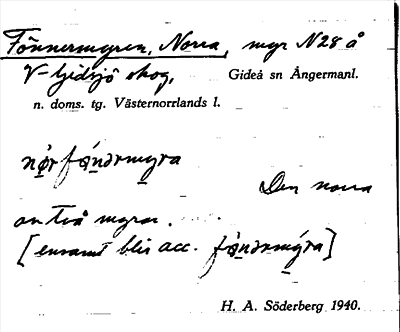 Tönnermyren, Norra, myr N 28 å
V-Gidsjö skog, Gideå sn Ångermanl.
n. doms. tg. Västernorrlands l.
Den norra
av två myrar.
[ensamt blir acc.
H. A. Söderberg 1940.